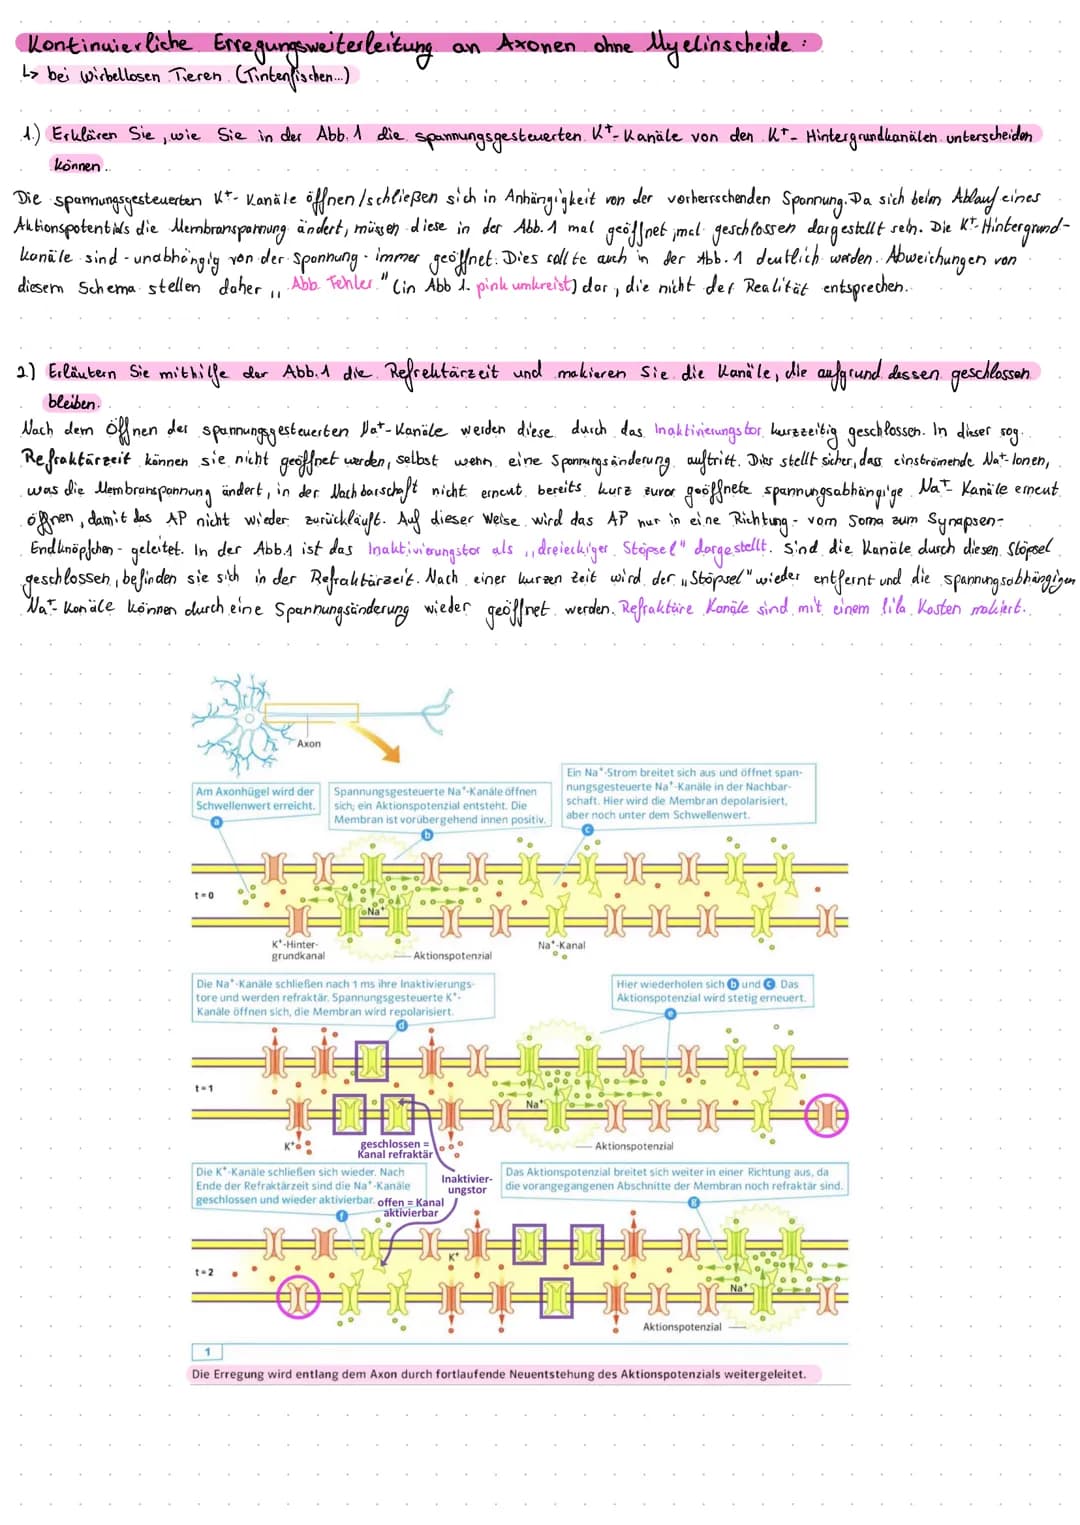 Kontinuierliche Erregungsweiterleitung an Axonen ohne Myelinscheide:
↳ bei wirbellosen Tieren (Tintenfischen...)
1.) Erklären Sie, wie Sie in der Abb. 1 die spannungsgesteuerten K⁺-Kanäle von den K⁺-Hintergrundkanälen unterscheiden
können.
Die spannungsgesteuerten K⁺-Kanäle öffnen/schließen sich in Anhängigkeit von der vorherrschenden Spannung. Da sich beim Ablauf eines
Aktionspotentials die Membranspannung ändert, müssen diese in der Abb. 1 mal geöffnet, mal geschlossen dargestellt sein. Die K⁺-Hintergrund-
kanäle sind - unabhängig von der Spannung - immer geöffnet. Dies sollte auch in der Abb. 1 deutlich werden. Abweichungen von
diesem Schema stellen daher „Abb. Fehler" (in Abb 1. pink umkreist) dar, die nicht der Realität entsprechen.
2.) Erläutern Sie mithilfe der Abb. 1 die Refrektärzeit und makieren Sie die Kanäle, die aufgrund dessen geschlossen
bleiben.
Nach dem Öffnen der spannungsgesteuerten Na⁺-Kanäle werden diese durch das Inaktivierungstor kurzzeitig geschlossen. In dieser sog.
Refraktärzeit können sie nicht geöffnet werden, selbst wenn eine Spannungsänderung auftritt. Dies stellt sicher, dass einströmende Na⁺-Ionen,
was die Membranspannung ändert, in der Nachbarschaft nicht erneut bereits kurz zuvor geöffnete spannungsabhängige Na⁺-Kanäle erneut
öffnen, damit das AP nicht wieder zurückläuft. Auf dieser Weise wird das AP nur in eine Richtung - vom Soma zum Synapsen-
Endknöpfchen - geleitet. In der Abb.1 ist das Inaktivierungstor als „dreieckiger Stöpsel" dargestellt. Sind die Kanäle durch diesen Stöpsel
geschlossen, befinden sie sich in der Refraktärzeit. Nach einer kurzen Zeit wird der „Stöpsel" wieder entfernt und die spannungsabhängigen
Na⁺-Kanäle können durch eine Spannungsänderung wieder geöffnet werden. Refraktäre Kanäle sind mit einem lila Kasten makiert.
Axon
Am Axonhügel wird der
Schwellenwert erreicht.
a
Spannungsgesteuerte Na⁺-Kanäle öffnen
sich; ein Aktionspotenzial entsteht. Die
Membran ist vorübergehend innen positiv.
b
Ein Na⁺-Strom breitet sich aus und öffnet span-
nungsgesteuerte Na⁺-Kanäle in der Nachbar-
schaft. Hier wird die Membran depolarisiert,
aber noch unter dem Schwellenwert.
c
t=0
Na⁺
K⁺-Hinter-
grundkanal
Aktionspotenzial
Na⁺-Kanal
Die Na⁺-Kanäle schließen nach 1 ms ihre Inaktivierungs-
tore und werden refraktär. Spannungsgesteuerte K⁺-
Kanäle öffnen sich, die Membran wird repolarisiert.
d
Hier wiederholen sich b und c Das
Aktionspotenzial wird stetig erneuert.
e
t=1
Na⁺
K⁺
geschlossen =
Kanal refraktär
Aktionspotenzial
Die K⁺-Kanäle schließen sich wieder. Nach
Ende der Refraktärzeit sind die Na⁺-Kanäle
geschlossen und wieder aktivierbar.
f
offen = Kanal
aktivierbar
Inaktivier-
ungstor
Das Aktionspotenzial breitet sich weiter in einer Richtung aus, da
die vorangegangenen Abschnitte der Membran noch refraktär sind.
g
K⁺
t=2
Na⁺
Aktionspotenzial
1
Die Erregung wird entlang dem Axon durch fortlaufende Neuentstehung des Aktionspotenzials weitergeleitet.